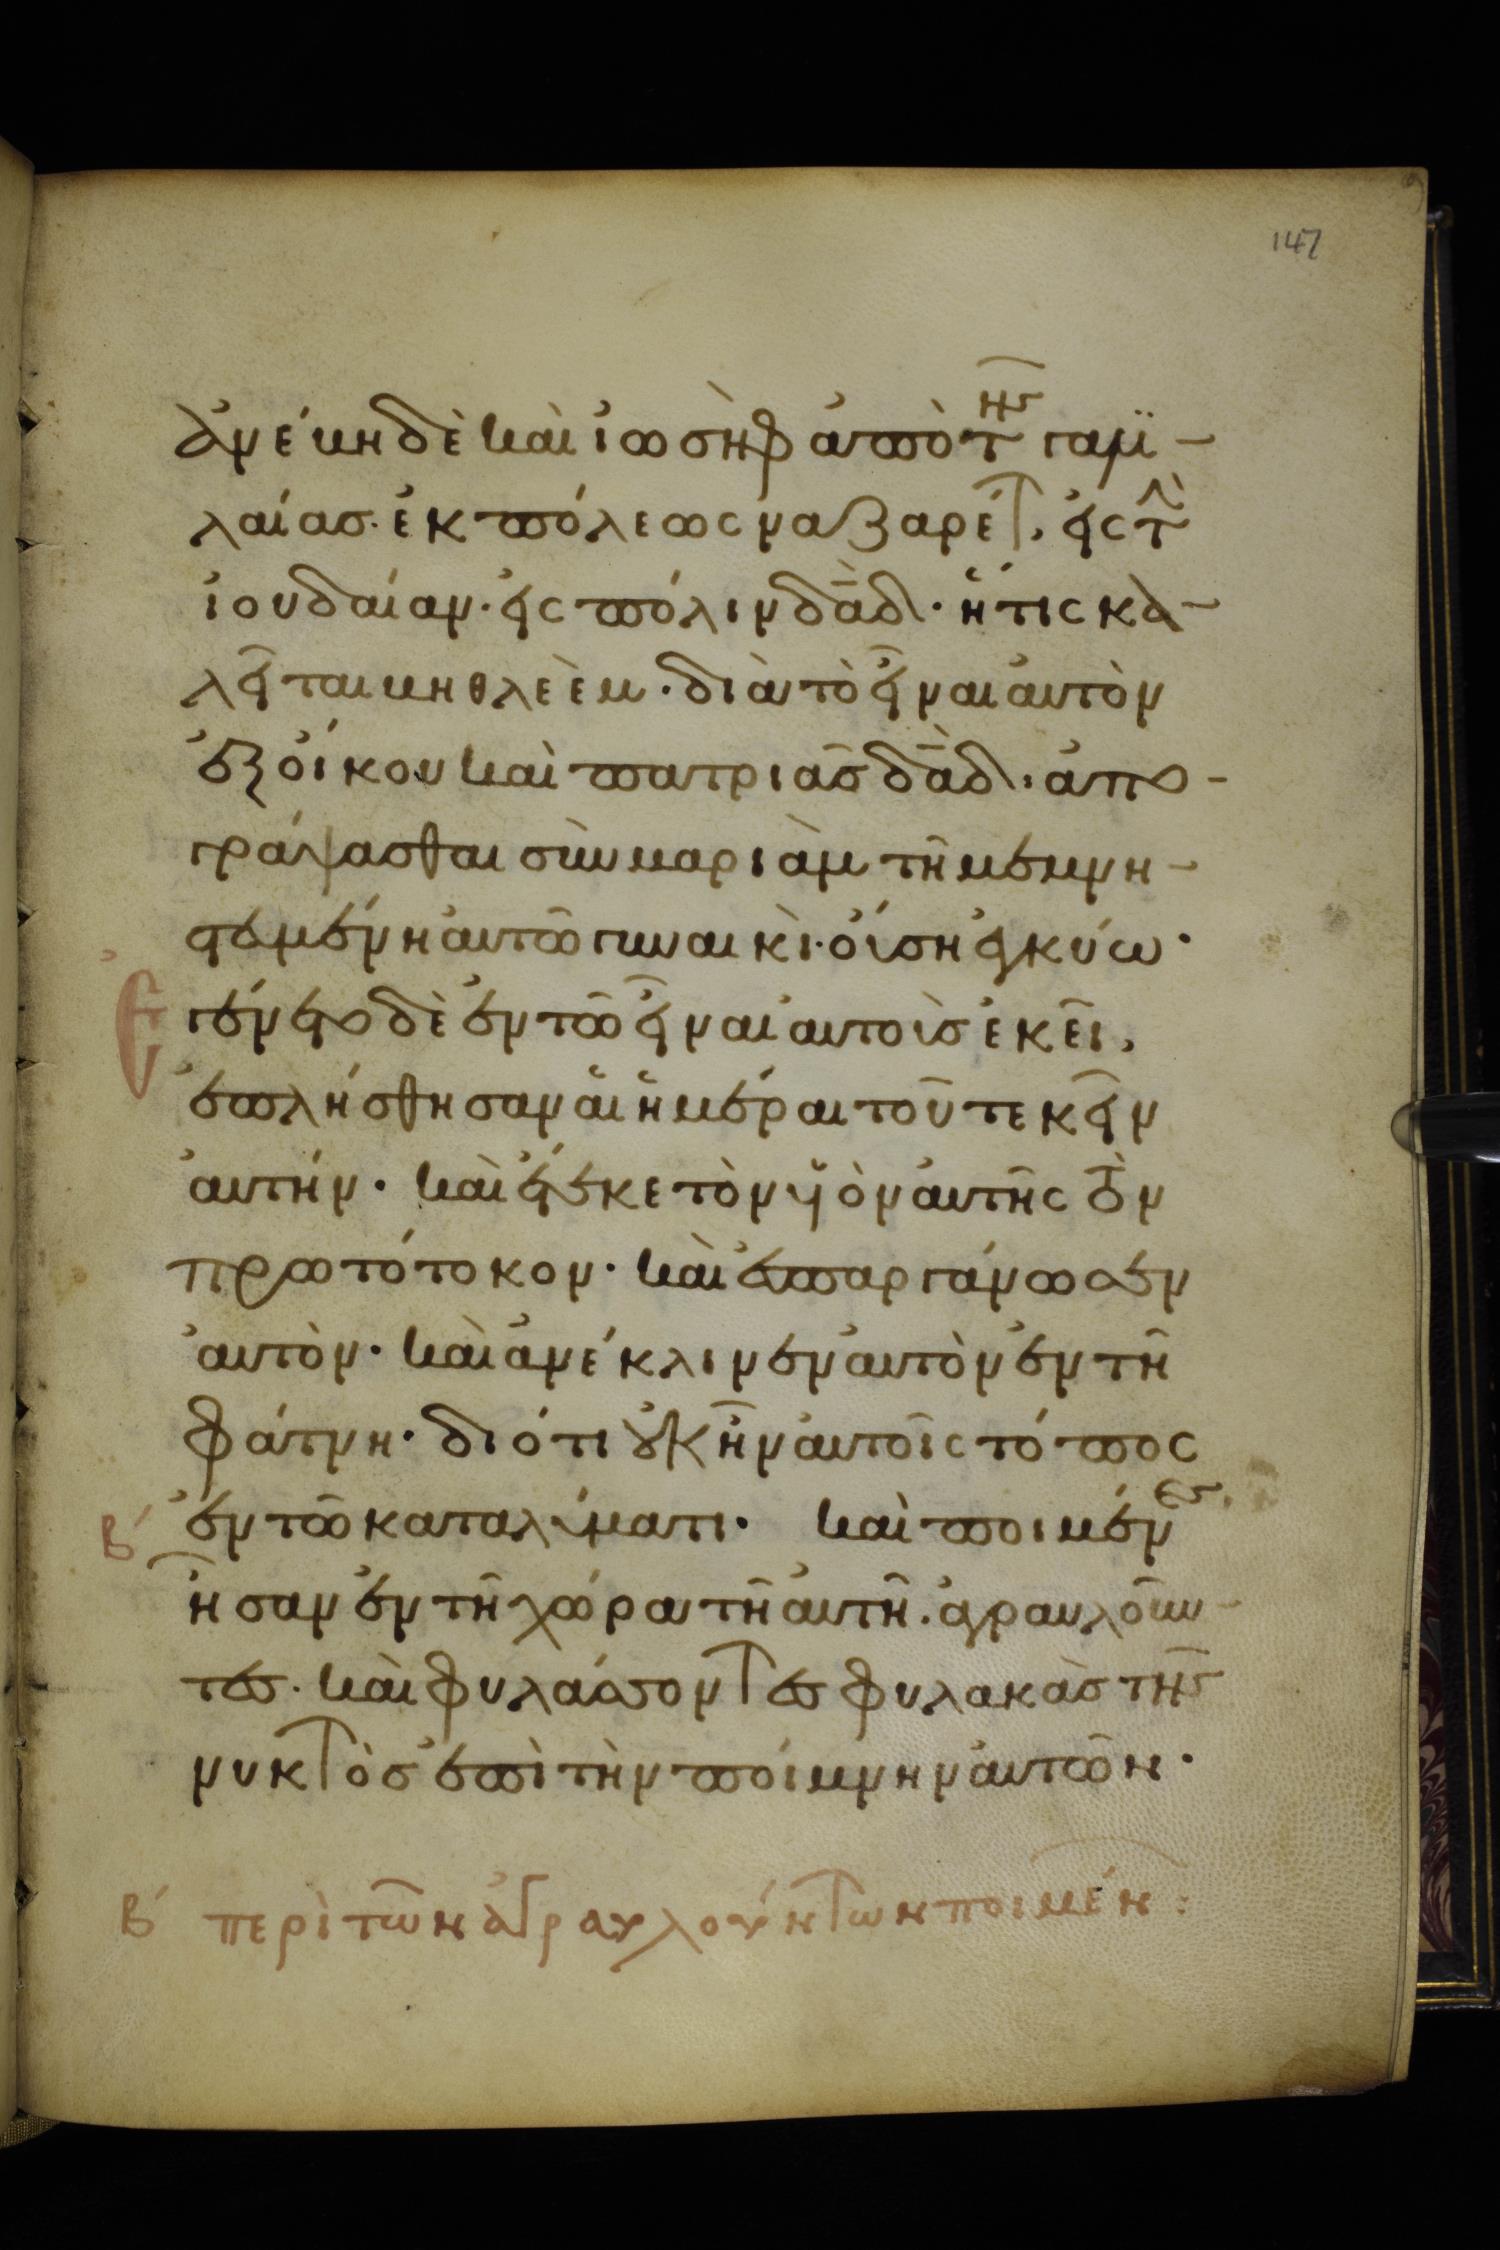 147
ἀνέβη δὲ καὶ ἰωσὴφ ἀπὸ τῆς γαλϊ-
λαίας· ἐκ πόλεως ναζαρέτ, εἰς τὴν
ἰουδαίαν· εἰς πόλιν δᾱδ· ἥτις κα-
λεῖται βηθλεὲμ· διὰ τὸ εἶναι αὐτὸν
ἐξ οἴκου καὶ πατριᾶς δᾱδ· ἀπο-
γράψασθαι σὺν μαριὰμ τῆ μεμνη-
στευμένη αὐτῶ γυναικὶ· οὔση ἐγκύω·
ἐγένετο δὲ ἐν τῶ εἶναι αὐτοὺς ἐκεῖ,
ἐπλήσθησαν αἱ ἡμέραι τοῦ τεκεῖν
αὐτήν· καὶ ἔτεκε τὸν υἱὸν αὐτῆς τὸν
πρωτότοκον· καὶ ἐσπαργάνωσεν
αὐτὸν· καὶ ἀνέκλινεν αὐτὸν ἐν τῆ
φάτνη· διότι οὐκ ἦν αὐτοῖς τόπος
β́ ἐν τῶ καταλύματι· καὶ ποιμένες
ἦσαν ἐν τῆ χώρα τῆ αὐτῆ· ἀγραυλοῦν-
τες· καὶ φυλάσσοντες φυλακὰς τῆς
νυκτὸς ἐπὶ τὴν ποίμνην αὐτῶν·
β́ περὶ τῶν ἀγραυλούντων ποιμέν: